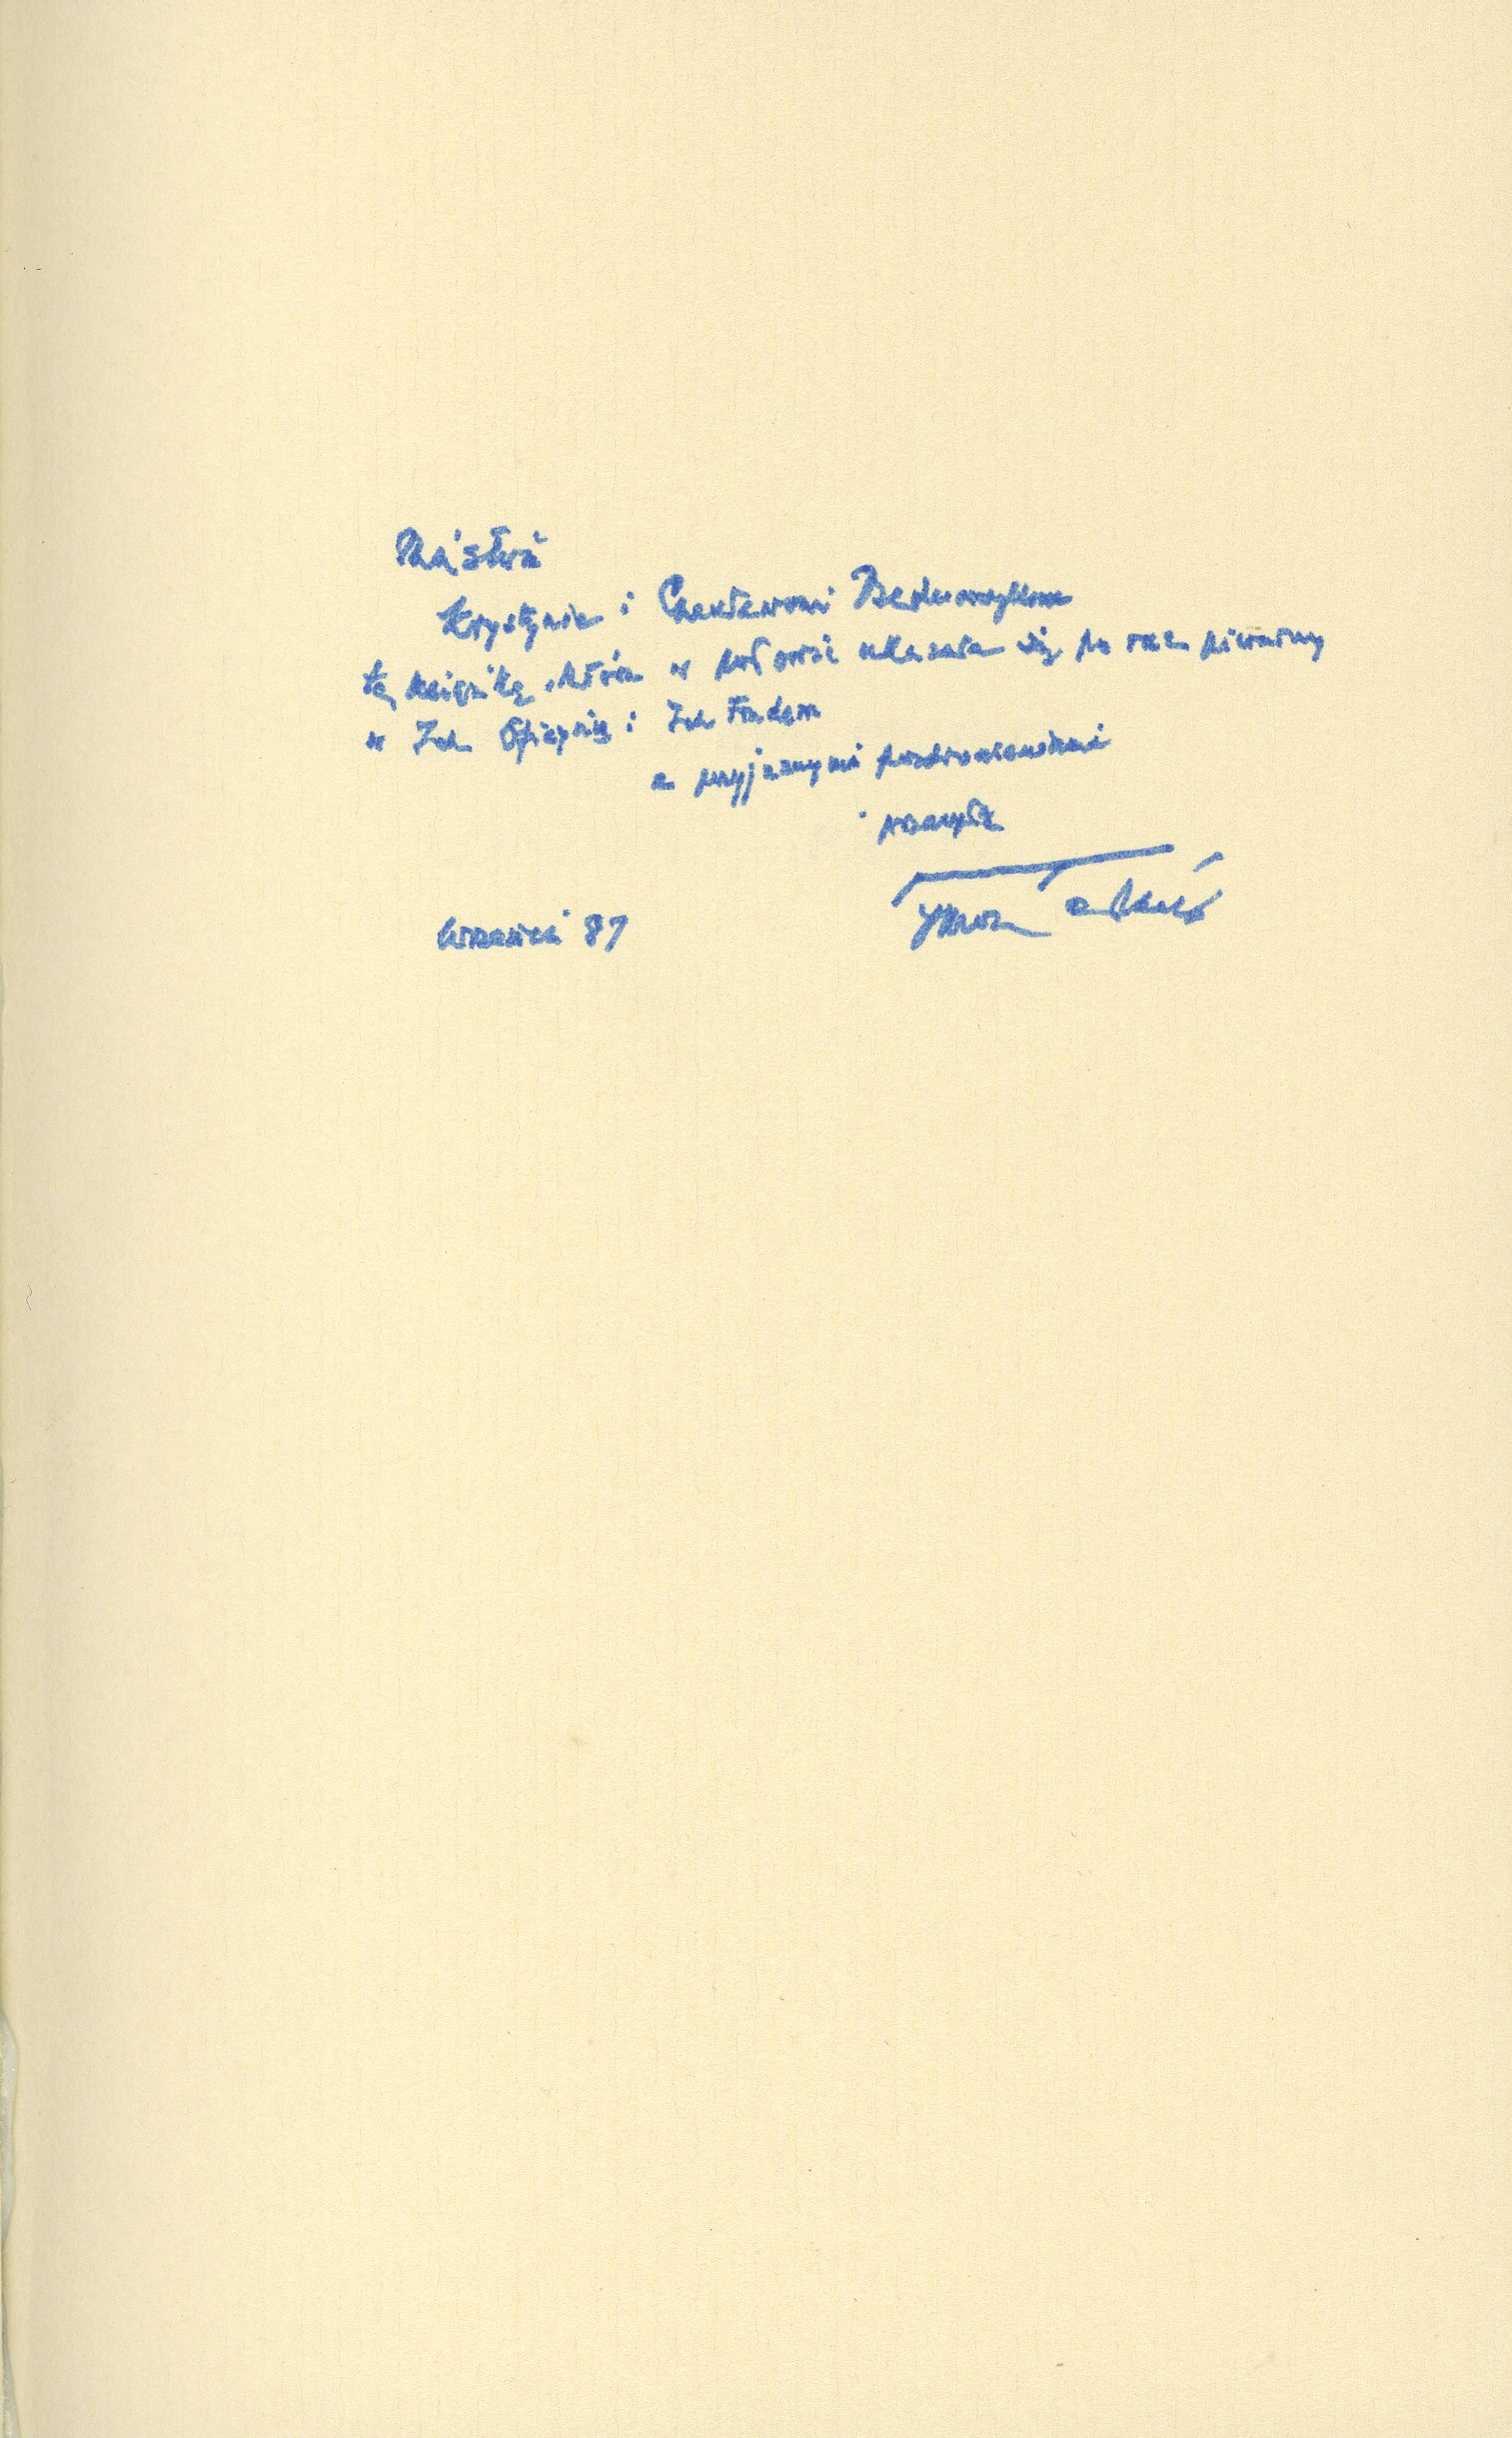 Państwu
Krystynie i Czesławowi Bednarczykom
tę książkę, która w połowie ukazała się po raz pierwszy
w Ich Oficynie i Ich Trudem
z przyjaznymi pozdrowieniami
przesyła
wrzesień 87